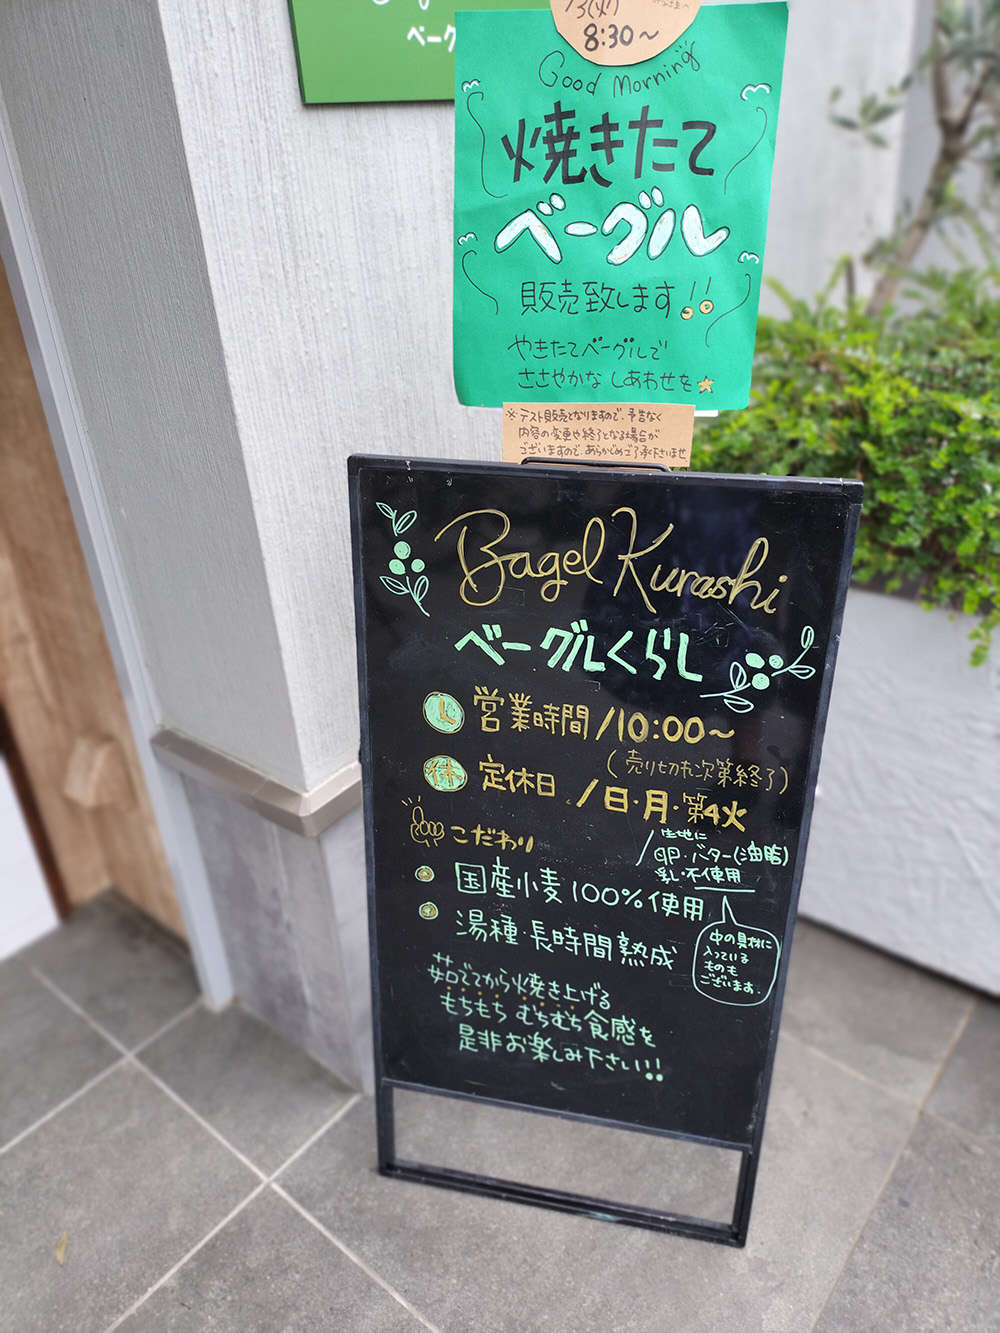 ベーグ
/3(火)
8:30～
Good Morning
焼きたて
ベーグル
販売致します!!
やきたてベーグルで
ささやかな しあわせを☆
※テスト販売となりますので、予告なく
内容の変更や終了となる場合が
ございますので、あらかじめご了承下さいませ
Bagel Kurashi
ベーグルくらし
営業時間/10:00～
(売り切れ次第終了)
休 定休日 /日・月・第4火
こだわり
生地に
卵・バター(油脂)
乳・不使用
国産小麦100%使用
湯種・長時間熟成
中の具材に
入っている
ものも
ございます。
茹でてから焼き上げる
もちもち むちむち食感を
是非お楽しみ下さい!!